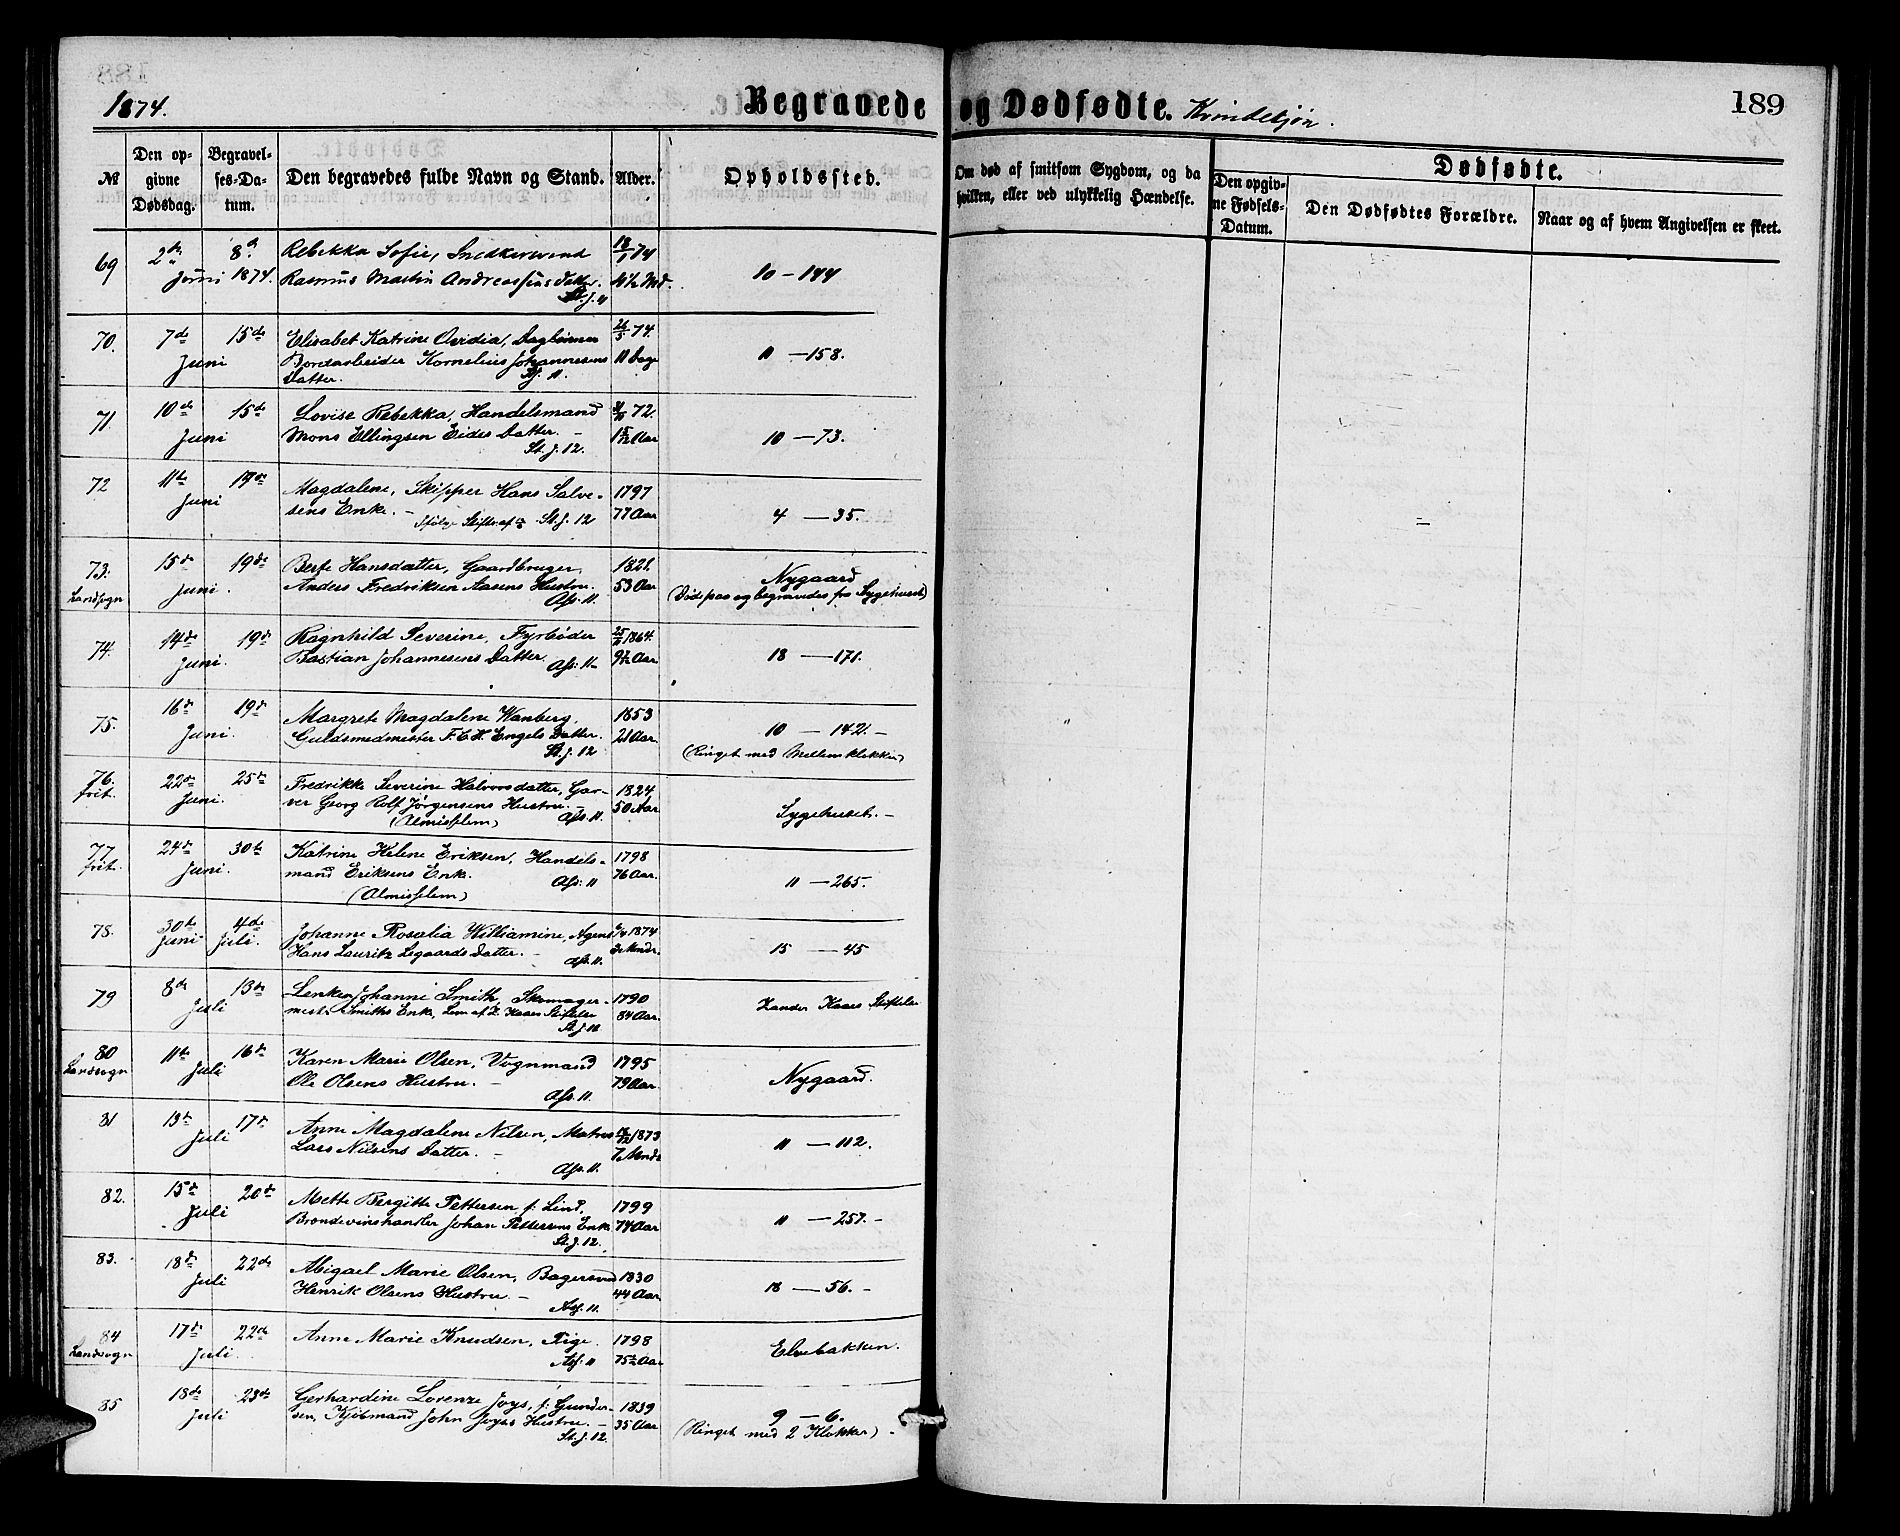 1874.
Begravede og Dødfødte. Kvindekjøn.
189
№
Den opgivne Dødsdag.
Begravelses-Datum.
Den begravedes fulde Navn og Stand.
Alder.
Opholdssted.
Om død af smitsom Sygdom, og da hvilken, eller ved ulykkelig Hændelse.
Dødfødte.
Den opgivne Fødsels-Datum.
Den Dødfødtes Forældre.
Naar og af hvem Angivelsen er skeet.
69 2den 8de Rebekka Sofie, Snedkersvend 18/1 74
Juni 1874. Rasmus Martin Andreassens Datter. 4 1/2 Md. 10 – 144
St. J. 11
70. 7de 15de Elisabet Katrine Ovidia, Dagleiner 26/5 74.
Juni Bordarbeider Kornelius Johannesens 11 Dage 11 – 158.
Datter. St. J. 11.
71. 10de 15de Lovise Rebekka, Handelsmand 72.
Juni Mons Ellingsen Eides Datter. – Aar 10 – 73.
St. J. 12.
72 11te 19de Magdalene, Skipper Hans Salve- 1797
Juni sens Enke. – St. J. 12 77 Aar 4 – 35.
73. 15de 19de Berte Hansdatter, Gaardbruger 1821. Nygaard
Landsogn Juni. Anders Fredriksen Aasens Hustru. 53 Aar (Døds paa og begravedes fra Sygehuset)
Ass. 11.
74. 14de 19de Ragnhild Severine, Fyrbøder 1864.
Juni. Bastian Johannesens Datter. 9 1/2 Aar. 18 – 171.
Ass. 11
75. 16de 19de Margrete Magdalene Wanberg, 1853
Juni. Guldsmedmester F. C. K. Engels Datter. 21 Aar. 10 – 142. –
St. J. 12 (Ringet med Mellemklokken)
76. 22de 25de Fredrikke Severine Halvorsdatter, Gar- 1824.
frit. Juni. ver Georg Rolf Jørgensens Hustru. – 50 Aar Sygehuset. –
(Almisselem) Ass. 11.
77 24de 30te Katrine Helene Eriksen, Handels- 1798
frit. Juni. mand Eriksens Enke. Ass. 11 76 Aar. 11 – 265.
(Almisselem)
78. 30te 4de Johanne Rosalia Williamine, Agent 1874
Juni Juli. Hans Lauritz Legaards Datter. – Mndr. 15 – 45
Ass. 11.
79 8de 13de Lenken Johanne Smith, Skomager- 1790 Zander Kaaes Stiftelse
Juli mest. Smiths Enke, Lem af Z. Kaaes Stiftelse 84 Aar.
St. J. 12
80 11te 16de Karen Marie Olsen, Vognmand 1795
Landsogn Juli Ole Olsens Hustru. – 79 Aar. Nygaard.
Ass. 11.
81 13de 17de Anne Magdalene Nilsen, Matros 1873
Juli Lars Nilsens Datter. – 7 Mndr 11 – 112.
Ass. 11.
82. 15de 20de Mette Bergitte Pettersen f: Lind, 1799
Juli Brændevinshandler Johan Pettersens Enke 74 Aar 11 – 257. –
St. J. 12.
83. 18de 22de Abigael Marie Olsen, Bagersvend 1830
Juli Henrik Olsens Hustru. – 44 Aar. 18 – 56. –
Ass. 11.
84 17de 22de Anne Marie Knudsen, Pige. 1798 Elvebakken.
Landsogn Juli. Ass. 11 75 1/2 Aar.
85 18de 23de Gerhardine Lorenze Joys, f: Gunder- 1839 9 – 6.
Juli sen, Kjøbmand John Joyes Hustru. – 35 Aar (Ringet med 2 Klokker) –
St. J. 12.